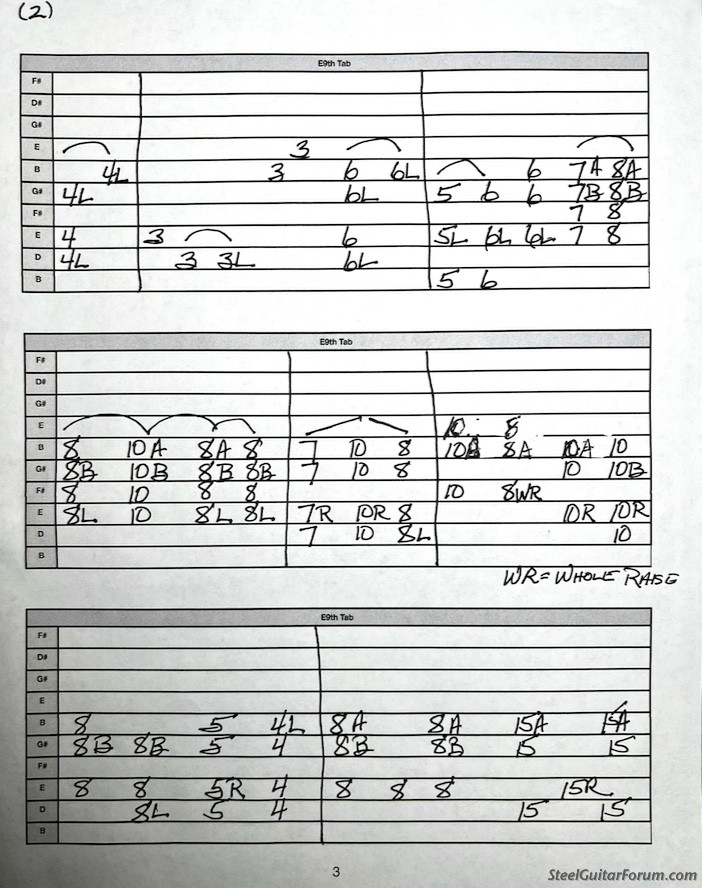 (2)
E9th Tab
F#
D#
G#
E 3
B 4L 3 6 6L 6 7A 8A
G# 4L 6L 5 6 6 7B 8B
F# 7 8
E 4 3 6 5L 6L 6L 7 8
D 4L 3 3L 6L
B 5 6
E9th Tab
F#
D#
G#
E 10 8
B 8 10A 8A 8 7 10 8 8A 10A 10
G# 8B 10B 8B 8B 7 10 8 10 10B
F# 8 10 8 8 10 8WR
E 8L 10 8L 8L 7R 10R 8 10R 10R
D 7 10 8L 10
B
WR = WHOLE RAISE
E9th Tab
F#
D#
G#
E
B 8 5 4L 8A 8A 15A 15A
G# 8B 8B 5 4 8B 8B 15 15
F#
E 8 8 5R 4 8 8 8 15R
D 8L 5 4 15 15
B
3
SteelGuitarForum.com